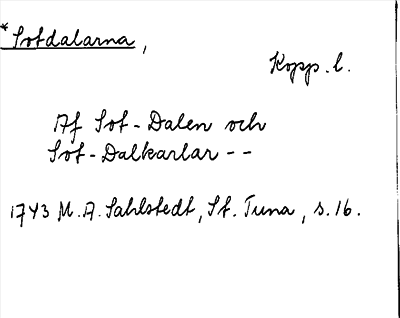 *Sotdalarna,
Kopp. l.
Af Sot-Dalen och
Sot-Dalkarlar --
1743 M. A. Sahlstedt, St. Tuna, s. 16.